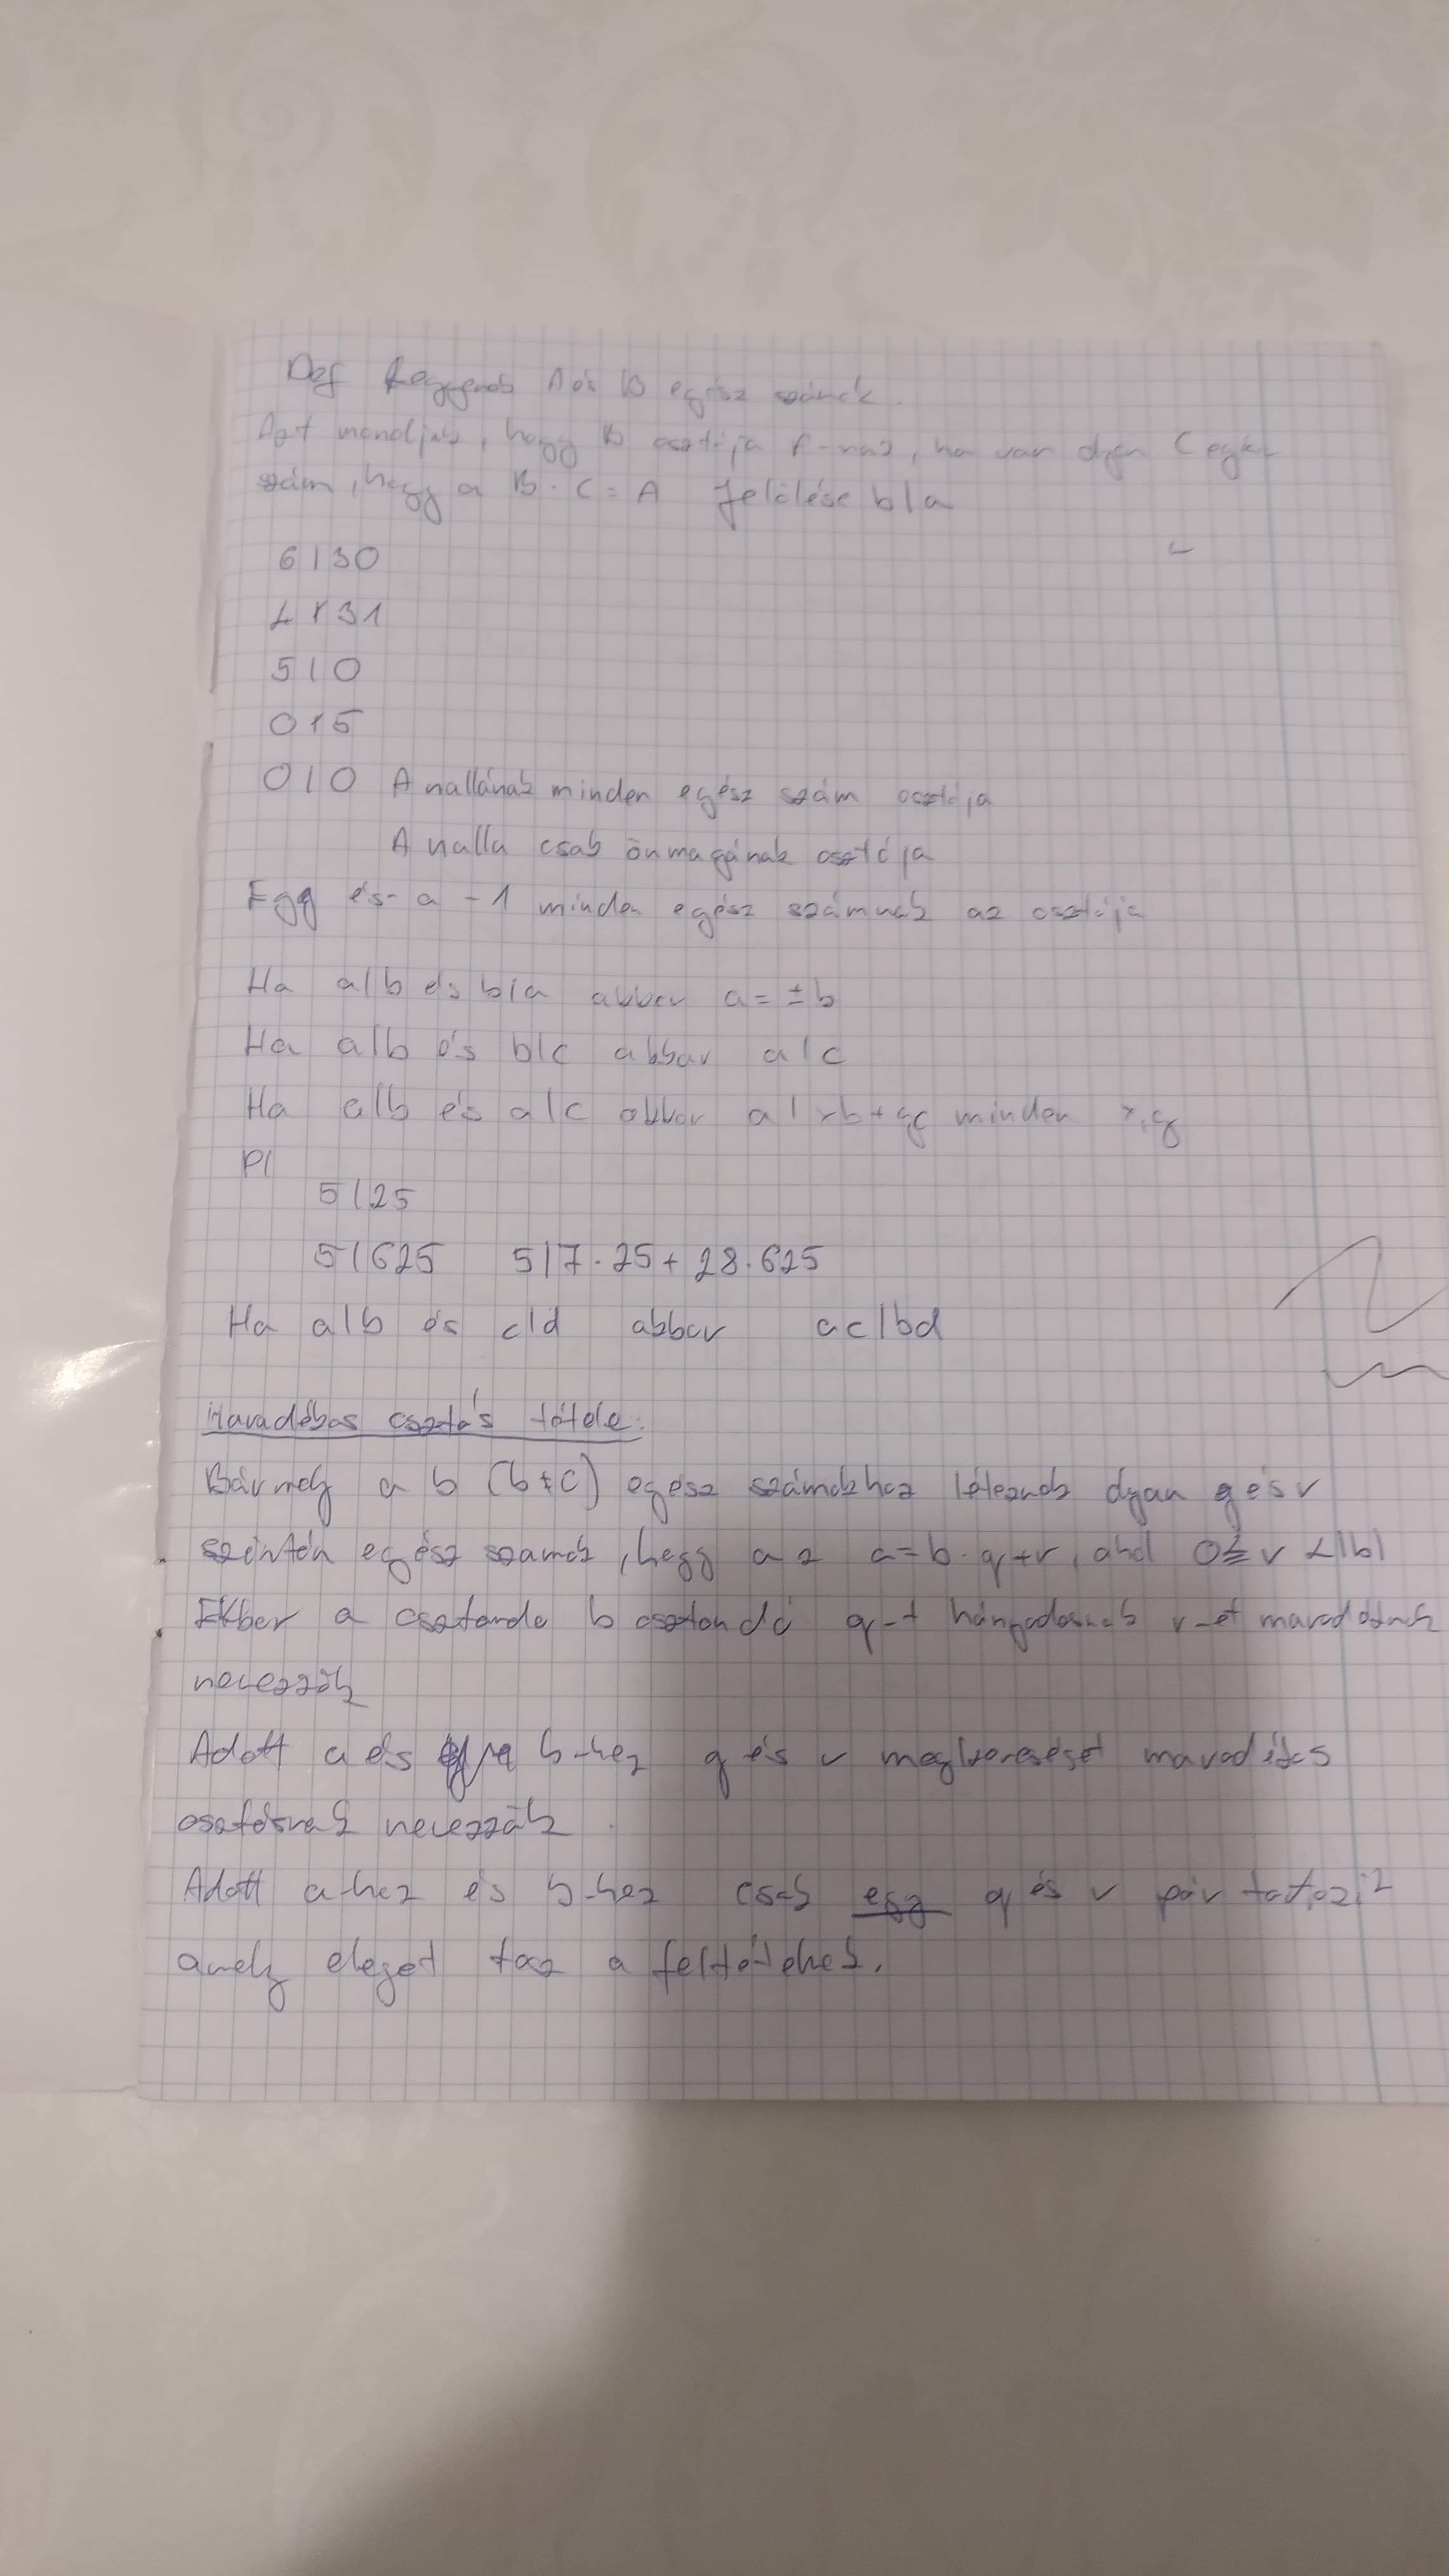 Def Legyenek A és B egész számok.
Azt mondjuk, hogy B osztója A-nak, ha van olyan C egész
szám, hogy a B · C = A Jelölése b|a
6|30
4∤31
5|0
0∤5
0|0 A nullának minden egész szám osztója
A nulla csak önmagának osztója
Egy és a -1 minden egész számnak az osztója
Ha a|b és b|a akkor a = ±b
Ha a|b és b|c akkor a|c
Ha a|b és a|c akkor a|xb+yc minden x,y
Pl
5|25
5|625 5|7·25+28·625
Ha a|b és c|d akkor ac|bd
Maradékos osztás tétele:
Bármely a b (b≠0) egész számokhoz léteznek olyan q és r
szintén egész számok, hogy az a=b·q+r, ahol 0≤r<|b|
Ekkor a osztandó b osztandó q-t hányadosnak r-et maradéknak
nevezzük
Adott a és b-hez q és r megkeresését maradékos
osztásnak nevezzük
Adott a-hoz és b-hez csak egy q és r pár tartozik
amely eleget tesz a feltételnek.